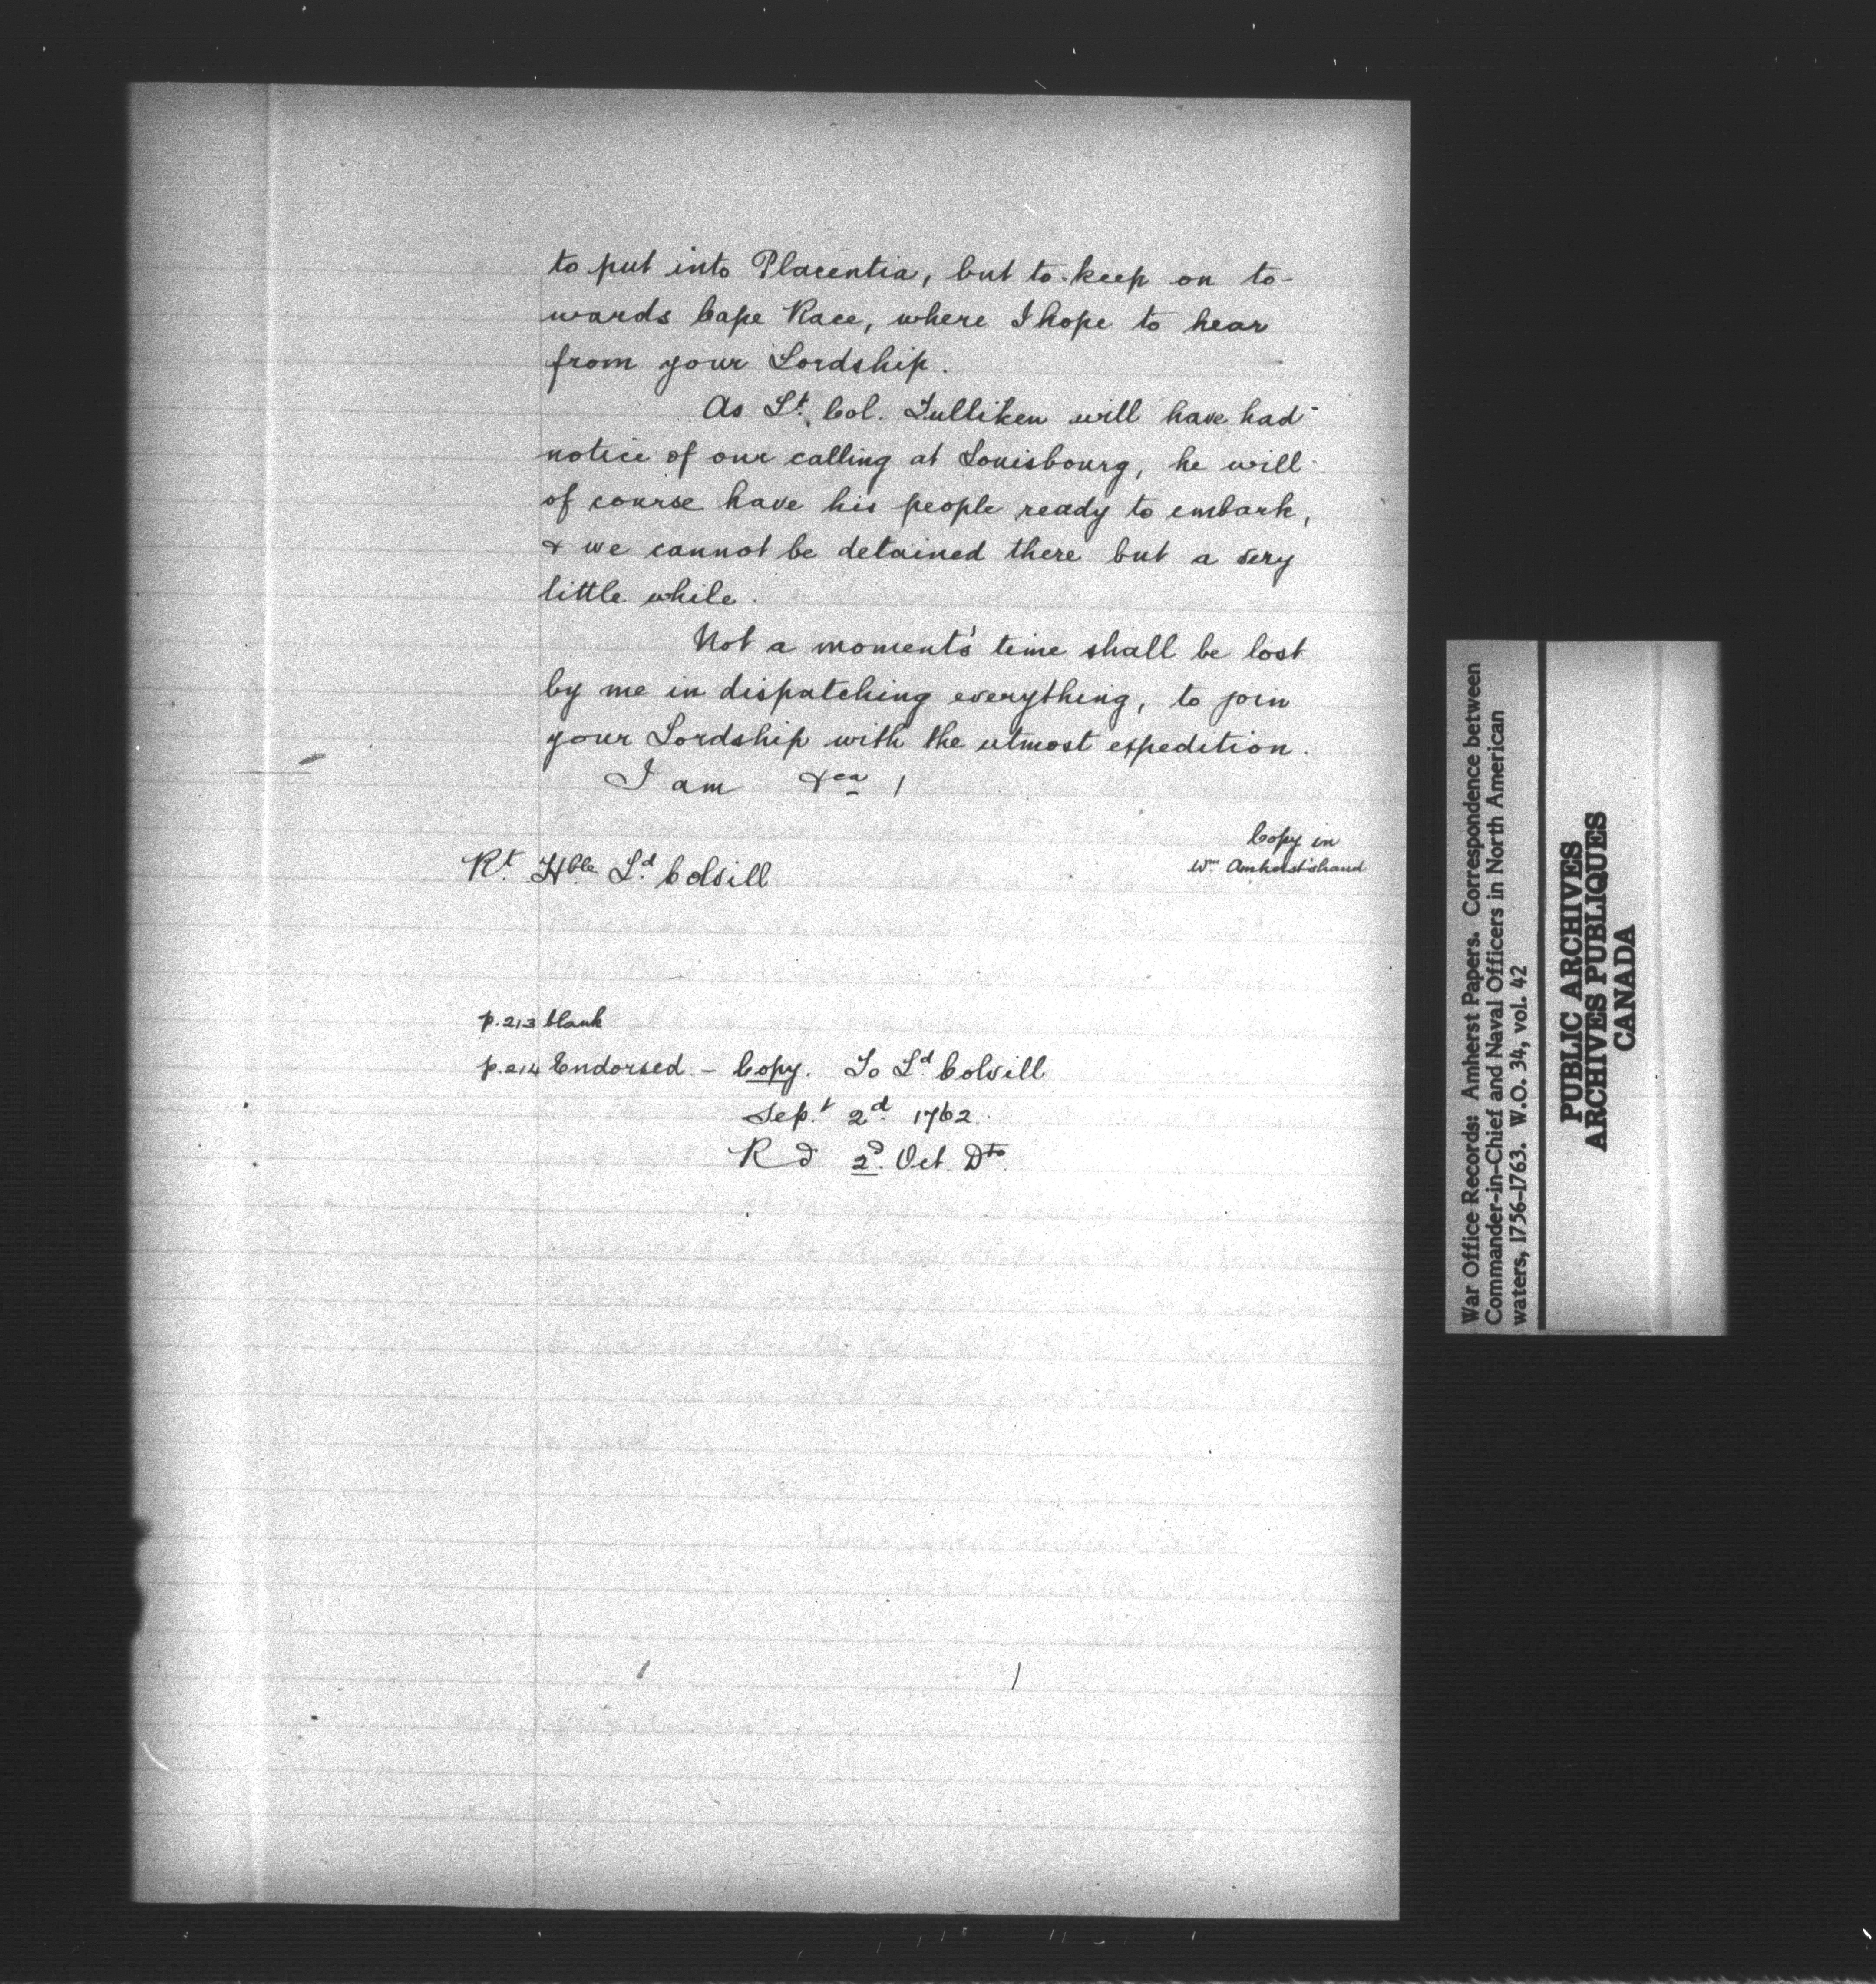 to put into Placentia, but to keep on to-
wards Cape Race, where I hope to hear
from your Lordship.
As Lt. Col. Tulliken will have had
notice of our calling at Louisbourg, he will
of course have his people ready to embark,
& we cannot be detained there but a very
little while.
Not a moment's time shall be lost
by me in dispatching everything, to join
your Lordship with the utmost expedition.
I am &ca /
Copy in
Wm Amherst's hand
Rt. Hble Ld. Colvill
p.213 blank
p.214 Endorsed - Copy. To Ld Colvill
Sep.t 2d. 1762.
R d 2d. Oct. Dto.
War Office Records: Amherst Papers. Correspondence between
Commander-in-Chief and Naval Officers in North American
waters, 1756-1763. W.O. 34, vol. 42
PUBLIC ARCHIVES
ARCHIVES PUBLIQUES
CANADA